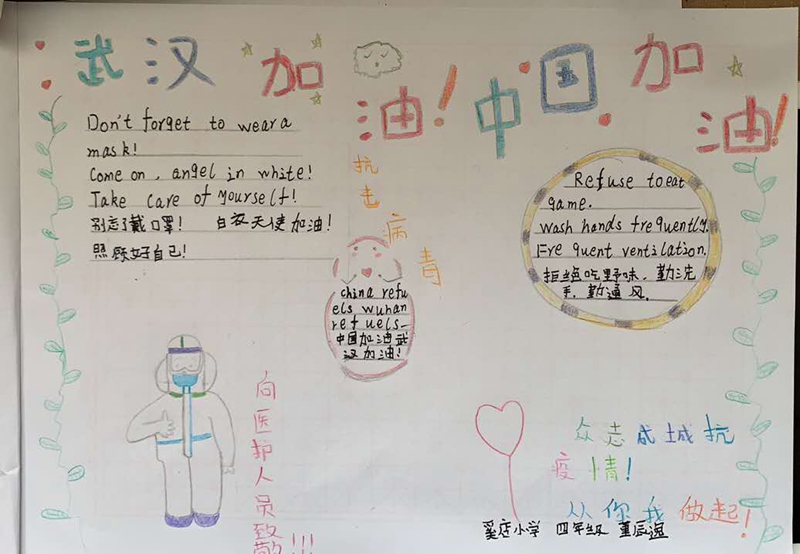 武汉加油!
中国加油!
Don't forget to wear a
mask!
Come on, angel in white!
Take care of yourself!
别忘了戴口罩! 白衣天使加油!
照顾好自己!
抗击病青
china refu
els wuhan
refuels—
中国加油武
汉加油!
Refuse to eat
game.
wash hands frequently.
Fre quent ventilation.
拒绝吃野味、勤洗
手、勤通风.
向医护人员致敬!!!
众志成城抗
疫情!
从你我做起!
小学 四年级